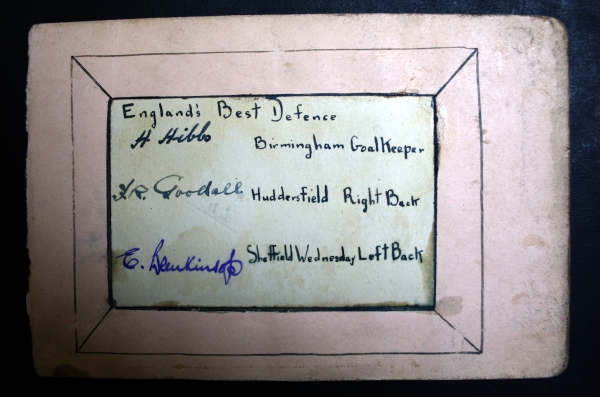 England's Best Defence
H Hibbs Birmingham GoalKeeper
F.R. Goodall Huddersfield Right Back
E. Blenkinsop Sheffield Wednesday Left Back